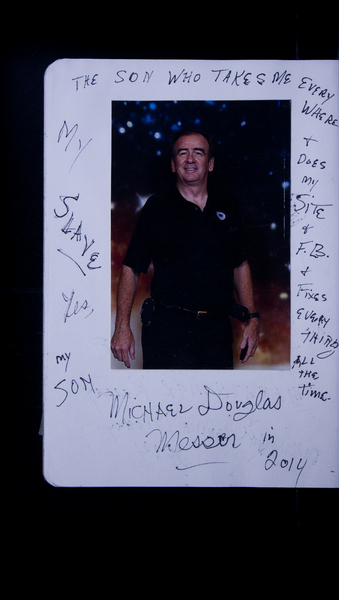 THE SON WHO TAKES ME EVERY
WHERE
+
DOES
MY
SITE
&
F.B.
&
FIXES
EVERY
THING
ALL
THE
TIME.
My
SLAVE
Yes,
my
SON
MICHAEL Douglas
Messer in
2014